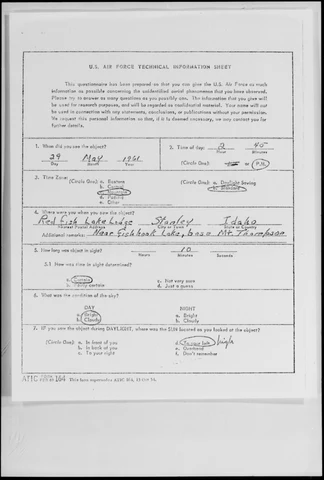 U.S. AIR FORCE TECHNICAL INFORMATION SHEET
This questionnaire has been prepared so that you can give the U.S. Air Force as much
information as possible concerning the unidentified aerial phenomenon that you have observed.
Please try to answer as many questions as you possibly can. The information that you give will
be used for research purposes, and will be regarded as confidential material. Your name will not
be used in connection with any statements, conclusions, or publications without your permission.
We request this personal information so that, if it is deemed necessary, we may contact you for
further details.
1. When did you see the object?
29 May 1961
Day Month Year
2. Time of day: 45
Hour Minutes
(Circle One): or P.M.
3. Time Zone:
(Circle One): a. Eastern
b. Central
c. Mountain
d. Pacific
e. Other
(Circle One): a. Daylight Saving
b. Standard
4. Where were you when you saw the object?
Red Fish Lake Lodge Stanley Idaho
Nearest Postal Address City or Town State or Country
Additional remarks: Near Fishhook Lake,
5. How long was object in sight? 10
Hours Minutes Seconds
5.1 How was time in sight determined?
a. Certain
b. Fairly certain
c. Not very sure
d. Just a guess
6. What was the condition of the sky?
DAY
a. Bright
b. Cloudy
NIGHT
a. Bright
b. Cloudy
7. IF you saw the object during DAYLIGHT, where was the SUN located as you looked at the object?
(Circle One): a. In front of you
b. In back of you
c. To your right
d. To your left high
e. Overhead
f. Don't remember
ATIC FORM 164 This form supersedes ATIC 164,